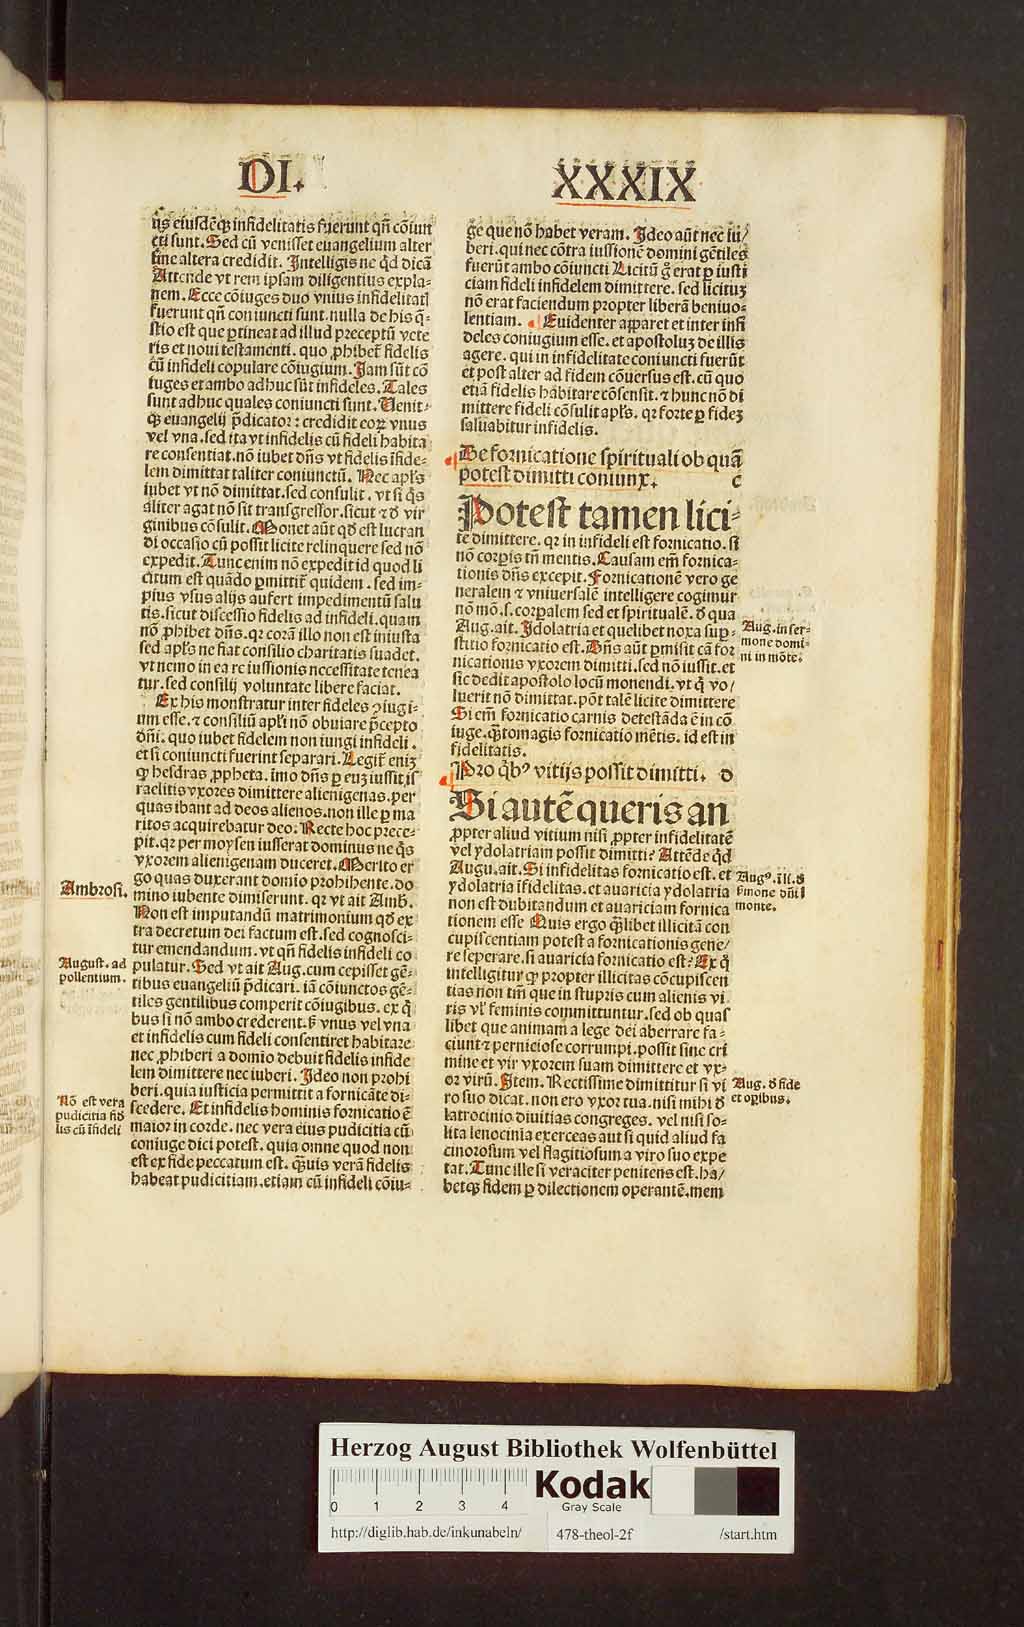 DI.
XXXIX
ijs eiusdēq̃ infidelitatis fuerunt qñ cōiun
cti sunt. Sed cū venisset euangelium alter
sine altera credidit. Intelligis ne qd dicā
Attende vt rem ipsam diligentius expla-
nem. Ecce cōiuges duo vnius infidelitatꝭ
fuerunt qñ coniuncti sunt. nulla de his q̄-
stio est que ꝑtineat ad illud preceptū vete
ris et noui testamenti. quo ꝓhibet᷑ fidelis
cū infideli copulare cōiugium. Iam sūt cō
iuges et ambo adhuc sūt infideles. Tales
sunt adhuc quales coniuncti sunt. Venit-
q̃ euangelij p̄dicator: credidit eoꝝ vnus
vel vna. sed ita vt infidelis cū fideli habita
re consentiat. nō iubet dn̄s vt fidelis īfide-
lem dimittat taliter coniunctū. Nec apl̄s
iubet vt nō dimittat. sed consulit. vt si q̄s
aliter agat nō sit transgressor. sicut ⁊ đ vir
ginibus cōsulit. Monet aūt qđ est lucran
di occasio cū possit licite relinquere sed nō
expedit. Tunc enim nō expedit id quod li
citum est quādo ꝑmittit᷑ quidem. sed im-
pius vsus alijs aufert impedimentū salu
tis. sicut discessio fidelis ad infideli. quam
nō ꝓhibet dn̄s. qꝛ corā illo non est iniusta
sed apl̄s ne fiat consilio charitatis suadet.
vt nemo in ea re iussionis necessitate tenea
tur. sed consilij voluntate libere faciat.
Ex his monstratur inter fideles ꝯiugi-
um esse. ⁊ consiliū apl̄i nō obuiare p̄cepto
dn̄i. quo iubet fidelem non iungi infideli.
et si coniuncti fuerint separari. Legit᷑ enim
ꝙ hesdras ꝓpheta. imo dn̄s ꝑ euꝫ iussit is
raelitis vxores dimittere alienigenas. per
quas ibant ad deos alienos. non ille ꝑ ma
ritos acquirebatur deo. Recte hoc prece-
pit. qꝛ per moysen iusserat dominus ne q̄s
vxorem alienigenam duceret. Merito er
go quas duxerant domio prohibente. do
mino iubente dimiserunt. qꝛ vt ait Amb.
Non est imputandū matrimonium qđ ex
tra decretum dei factum est. sed cognosci-
tur emendandum. vt qñ fidelis infideli co
pulatur. Sed vt ait Aug. cum cepisset gē-
tibus euangeliū p̄dicari. iā cōiunctos gē-
tiles gentilibus comperit cōiugibus. ex q̄
bus si nō ambo crederent. s̄ vnus vel vna
et infidelis cum fideli consentiret habitare
nec ꝓhiberi a domio debuit fidelis infide
lem dimittere nec iuberi. Ideo non prohi
beri. quia iusticia permittit a fornicāte di-
scedere. Et infidelis hominis fornicatio ē
maior in corde. nec vera eius pudicitia cū
coniuge dici potest. quia omne quod non
est ex fide peccatum est. q̃uis verā fidelis
habeat pudicitiam. etiam cū infideli cōiu-
Ambrosi.
August. ad
pollentium.
Nō est vera
pudicitia fid
lis cū īfideli
ge que nō habet veram. Ideo aūt nec iu/
beri. qui nec cōtra iussionē domini gētiles
fuerūt ambo cōiuncti Licitū ḡ erat ꝑ iusti
ciam fideli infidelem dimittere. sed licituꝫ
nō erat faciendum propter liberā beniuo-
lentiam. ¶ Euidenter apparet et inter infi
deles coniugium esse. et apostoluꝫ de illis
agere. qui in infidelitate coniuncti fuerūt
et post alter ad fidem cōuersus est. cū quo
etiā fidelis habitare cōsensit. ⁊ hunc nō di
mittere fideli cōsulit apl̄s. qꝛ forte ꝑ fideꝫ
saluabitur infidelis.
¶ De fornicatione spirituali ob quā
potest dimitti coniunx. c
Potest tamen lici-
te dimittere. qꝛ in infideli est fornicatio. si
nō corꝑis tn̄ mentis. Causam em̄ fornica-
tionis dn̄s excepit. Fornicationē vero ge
neralem ⁊ vniuersalē intelligere cogimur
nō mō. s. corꝑalem sed et spiritualē. đ qua
Aug. ait. Idolatria et quelibet noxa suꝑ-
stitio fornicatio est. Dn̄s aūt ꝑmisit cā for
nicationis vxorem dimitti. sed nō iussit. et
sic dedit apostolo locū monendi. vt q̄ vo/
luerit nō dimittat. pōt talē licite dimittere
Si em̄ fornicatio carnis detestāda ē in cō
iuge. q̃tomagis fornicatio mētis. id est in
fidelitatis.
¶ Pro qb᷒ vitijs possit dimitti. d
Si autē queris an
ꝓpter aliud vitium nisi ꝓpter infidelitatē
vel ydolatriam possit dimitti? Attēde qd
Augu. ait. Si infidelitas fornicatio est. et
ydolatria īfidelitas. et auaricia ydolatria
non est dubitandum et auariciam fornica
tionem esse Quis ergo q̃libet illicitā con
cupiscentiam potest a fornicationis gene/
re seperare. si auaricia fornicatio est? Ex q̄
intelligitur ꝙ propter illicitas cōcupiscen
tias non tm̄ que in stupris cum alienis vi
ris vl᷑ feminis committuntur. sed ob quas
libet que animam a lege dei aberrare fa-
ciunt ⁊ perniciose corrumpi. possit sine cri
mine et vir vxorem suam dimittere et vx-
or virū. Item. Rectissime dimittitur si vi
ro suo dicat. non ero vxor tua. nisi mihi đ
latrocinio diuitias congreges. vel nisi so-
lita lenocinia exerceas aut si quid aliud fa
cinorosum vel flagitiosum a viro suo expe
tat. Tunc ille si veraciter penitens est. ha/
betq̃ fidem ꝑ dilectionem operantē. mem
Aug. in ser-
mone domi-
ni in mōte.
Aug᷒. ī li. đ
s̄mone dn̄i ī
monte.
Aug. đ fide
et oꝑibus.
Herzog August Bibliothek Wolfenbüttel
0 1 2 3 4
Kodak
Gray Scale
http://diglib.hab.de/inkunabeln/ 478-theol-2f /start.htm